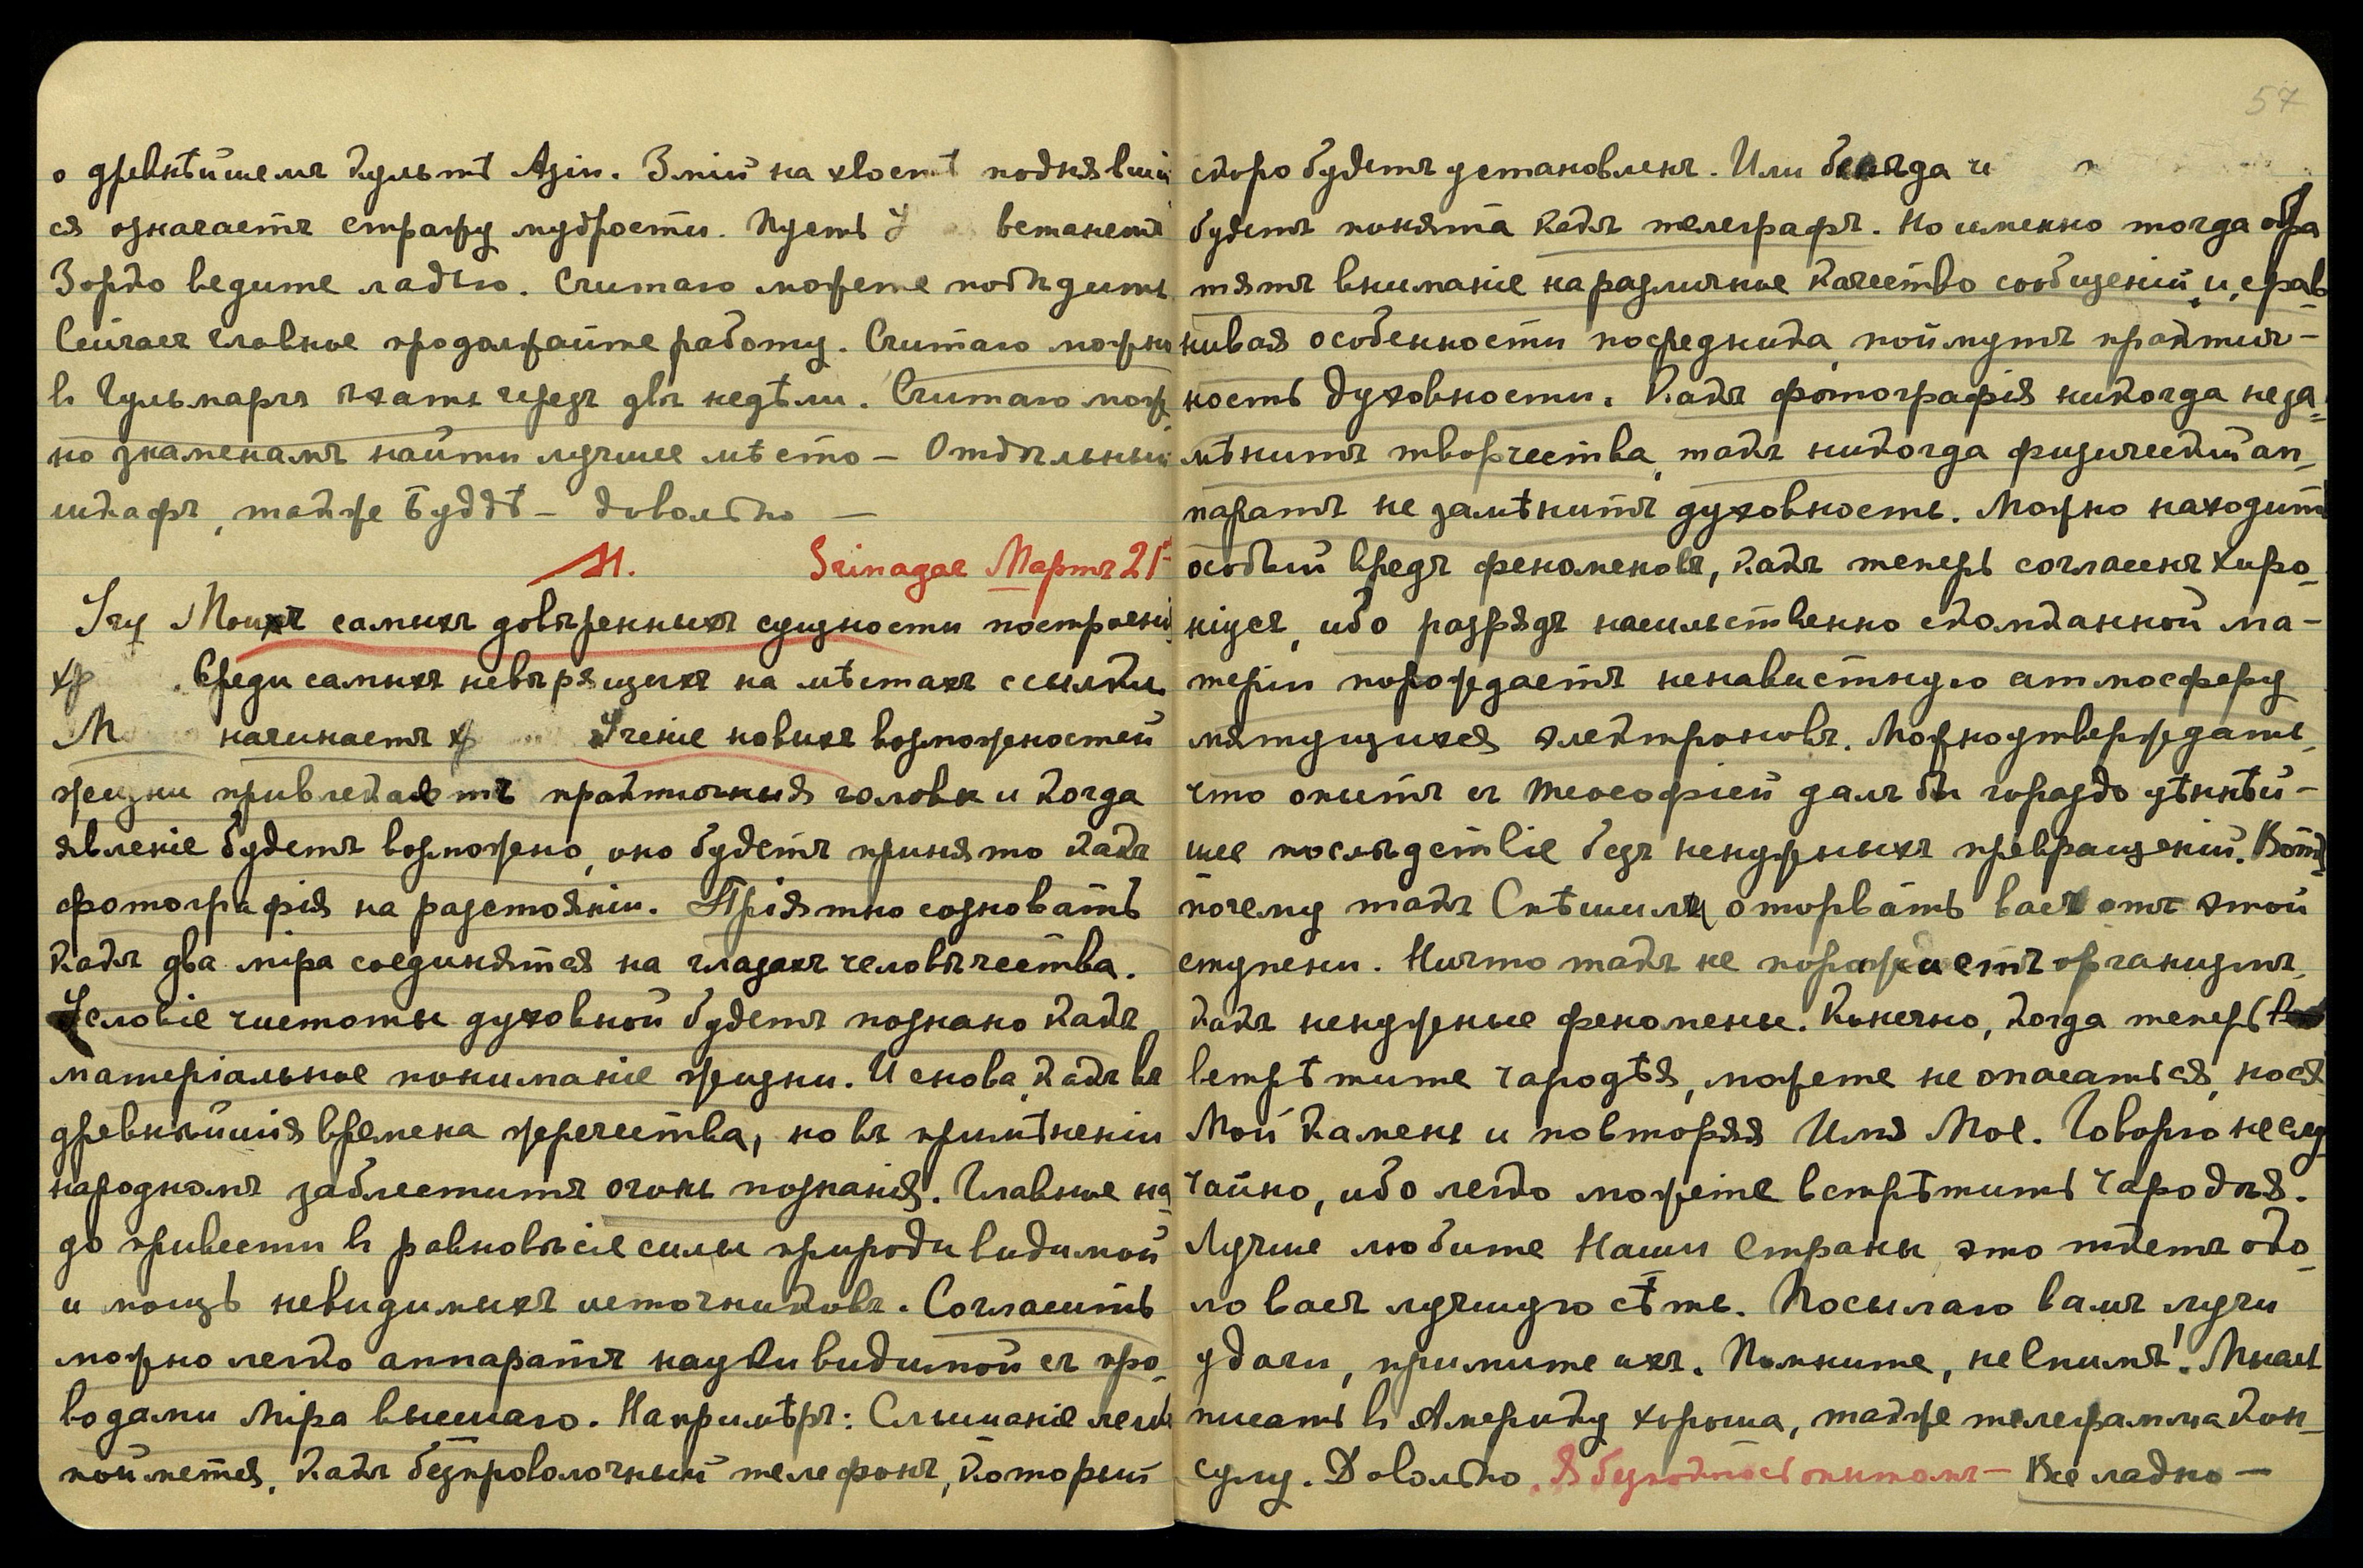 57
о древнѣйшемъ культѣ Азіи. Змій на хвостѣ поднявшій
ся означаетъ стражу мудрости. Пусть У встанетъ
Зорко ведите ладью. Считаю можете побѣдить
Сейчасъ главное продолжайте работу. Считаю можно
въ Гульмаргъ ѣхать черезъ двѣ недѣли. Считаю мож
но знаменамъ найти лучшее мѣсто – Отдѣльный
шкафъ, также Буддѣ – довольно –
М. Srinagar Мартъ 21
Моихъ самыхъ довѣренныхъ сущности построены
хр . Среди самыхъ невѣрящихъ на мѣстахъ ссылки.
М начинаетъ Ученіе новыхъ возможностей
жизни привлекаетъ практичныя головы и когда
явленіе будетъ возможно, оно будетъ принято какъ
фотографія на разстояніи. Пріятно созновать
какъ два міра соединятся на глазахъ человѣчества.
Условіе чистоты духовной будетъ познано какъ
матеріальное пониманіе жизни. И снова, какъ въ
древнѣйшія времена жречества, но въ примѣненіи
народномъ заблеститъ огонь познанія. Главное на
до привести въ равновѣсіе силы природы видимой
и мощь невидимыхъ источниковъ. Согласить
можно легко аппаратъ науки видимой съ про
водами міра высшаго. Напримѣръ: Слышаніе легко
поймется, какъ безпроволочный телефонъ, который
скоро будетъ установленъ. Или бесѣда
будетъ понята какъ телеграфъ. Но именно тогда обра
тятъ вниманіе на различное качество сообщеній, и, срав
нивая особенности посредника, поймутъ практич–
ность духовности. Какъ фотографія никогда не за–
мѣнитъ творчества, такъ никогда физическій ап–
паратъ не замѣнитъ духовность. Можно находить
особый вредъ феноменовъ, какъ теперь согласенъ Хиро–
ніусъ, ибо разрядъ насильственно скомканной ма–
теріи порождаетъ ненавистную атмосферу
мятущихся электроновъ. Можно утверждать,
что опытъ съ теософіей далъ бы гораздо цѣннѣй–
шее послѣдствіе безъ ненужныхъ превращеній. Вотъ
почему такъ Спѣшимъ оторвать васъ отъ этой
ступени. Ничто такъ не поражаетъ организмъ,
какъ ненужные феномены. Конечно, когда теперь
встрѣтите чародѣя, можете не опасаться, нося
Мой камень и повторяя Имя Мое. Говорю не слу
чайно, ибо легко можете встрѣтить чародѣя.
Лучше любите Наши Страны это ткетъ око–
ло васъ лучшую сѣть. Посылаю вамъ лучи
удачи, примите ихъ. Помните, не Спимъ! Мысль
писать въ Америку хороша, также телеграмма кон–
сулу. Довольно. Все ладно –